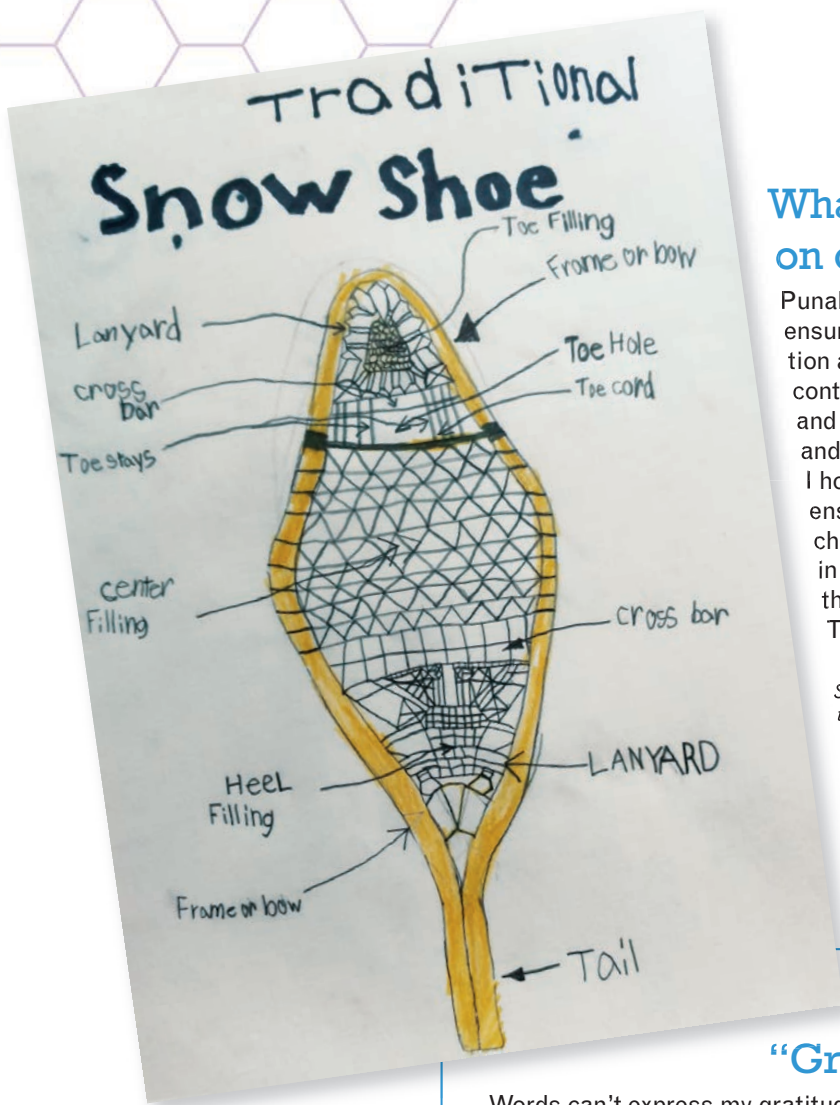 Traditional
Snow Shoe
Toe Filling
Frame or bow
Lanyard
Toe Hole
cross
bar
Toe cord
Toe stays
center
Filling
cross bar
HEEL
Filling
LANYARD
Frame or bow
Tail
Wha
on
Punal
ensur
tion a
cont
and
and
I ho
ens
ch
in
th
T
"Gr
Words can't express my gratitud